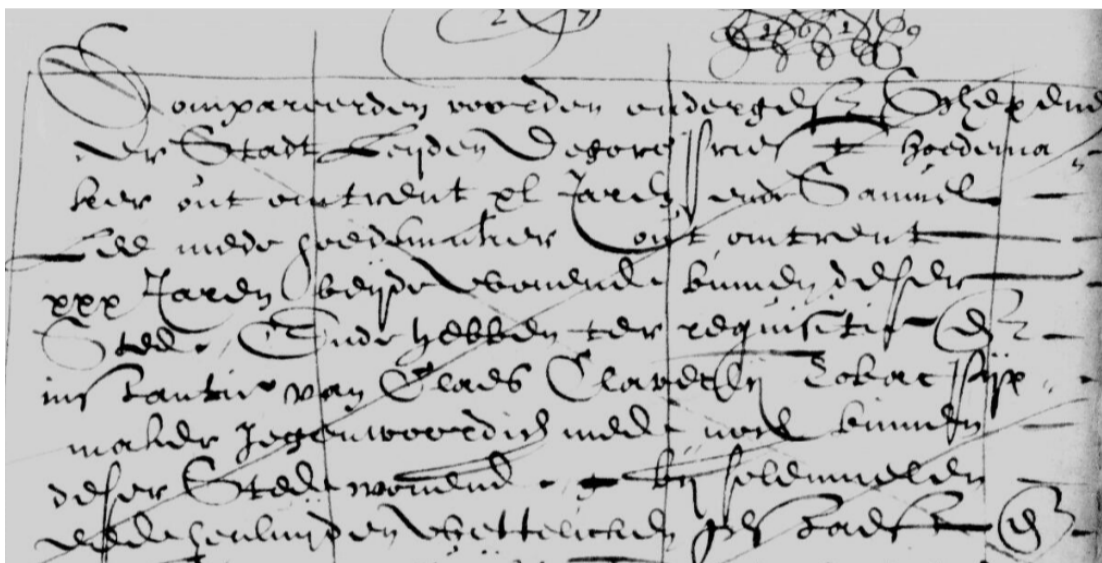 Compareerden voorden ondergesz Schepene
der Stadt Leijden hoedema
ker out omtrent xl Jaren ende Samuel
Lee mede hoedemaker out omtrent
xxx Jaren beijde wonende binnen deser
Stede. Ende hebben ter requisitie en
instantie van Claes Claesz Toback pijp
maker Jegenwoordich mede binnen
deser Stede wonende. bij solemnelen
eede henluijden wettelicken en